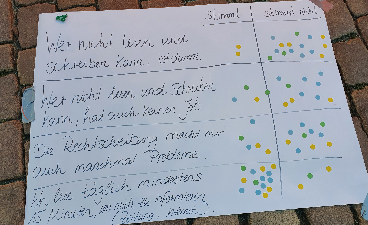 Stimmt
Stimmt nicht
Wer nicht lesen und
schreiben kann, ist dumm.
Wer nicht lesen und schreiben
kann, hat auch keinen Job.
Die Rechtschreibung macht mir
auch manchmal Probleme.
Ich lese täglich mindestens
15 Minuten, um mich zu informieren.